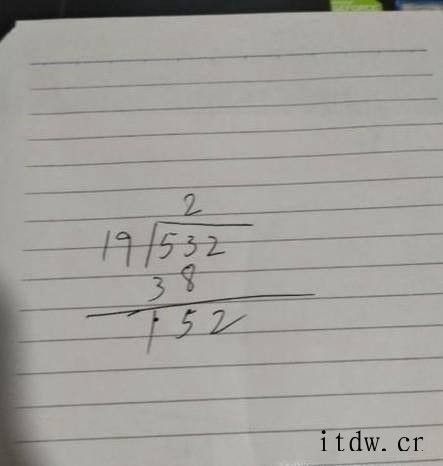 2
19 532
38
152
itdw.cr